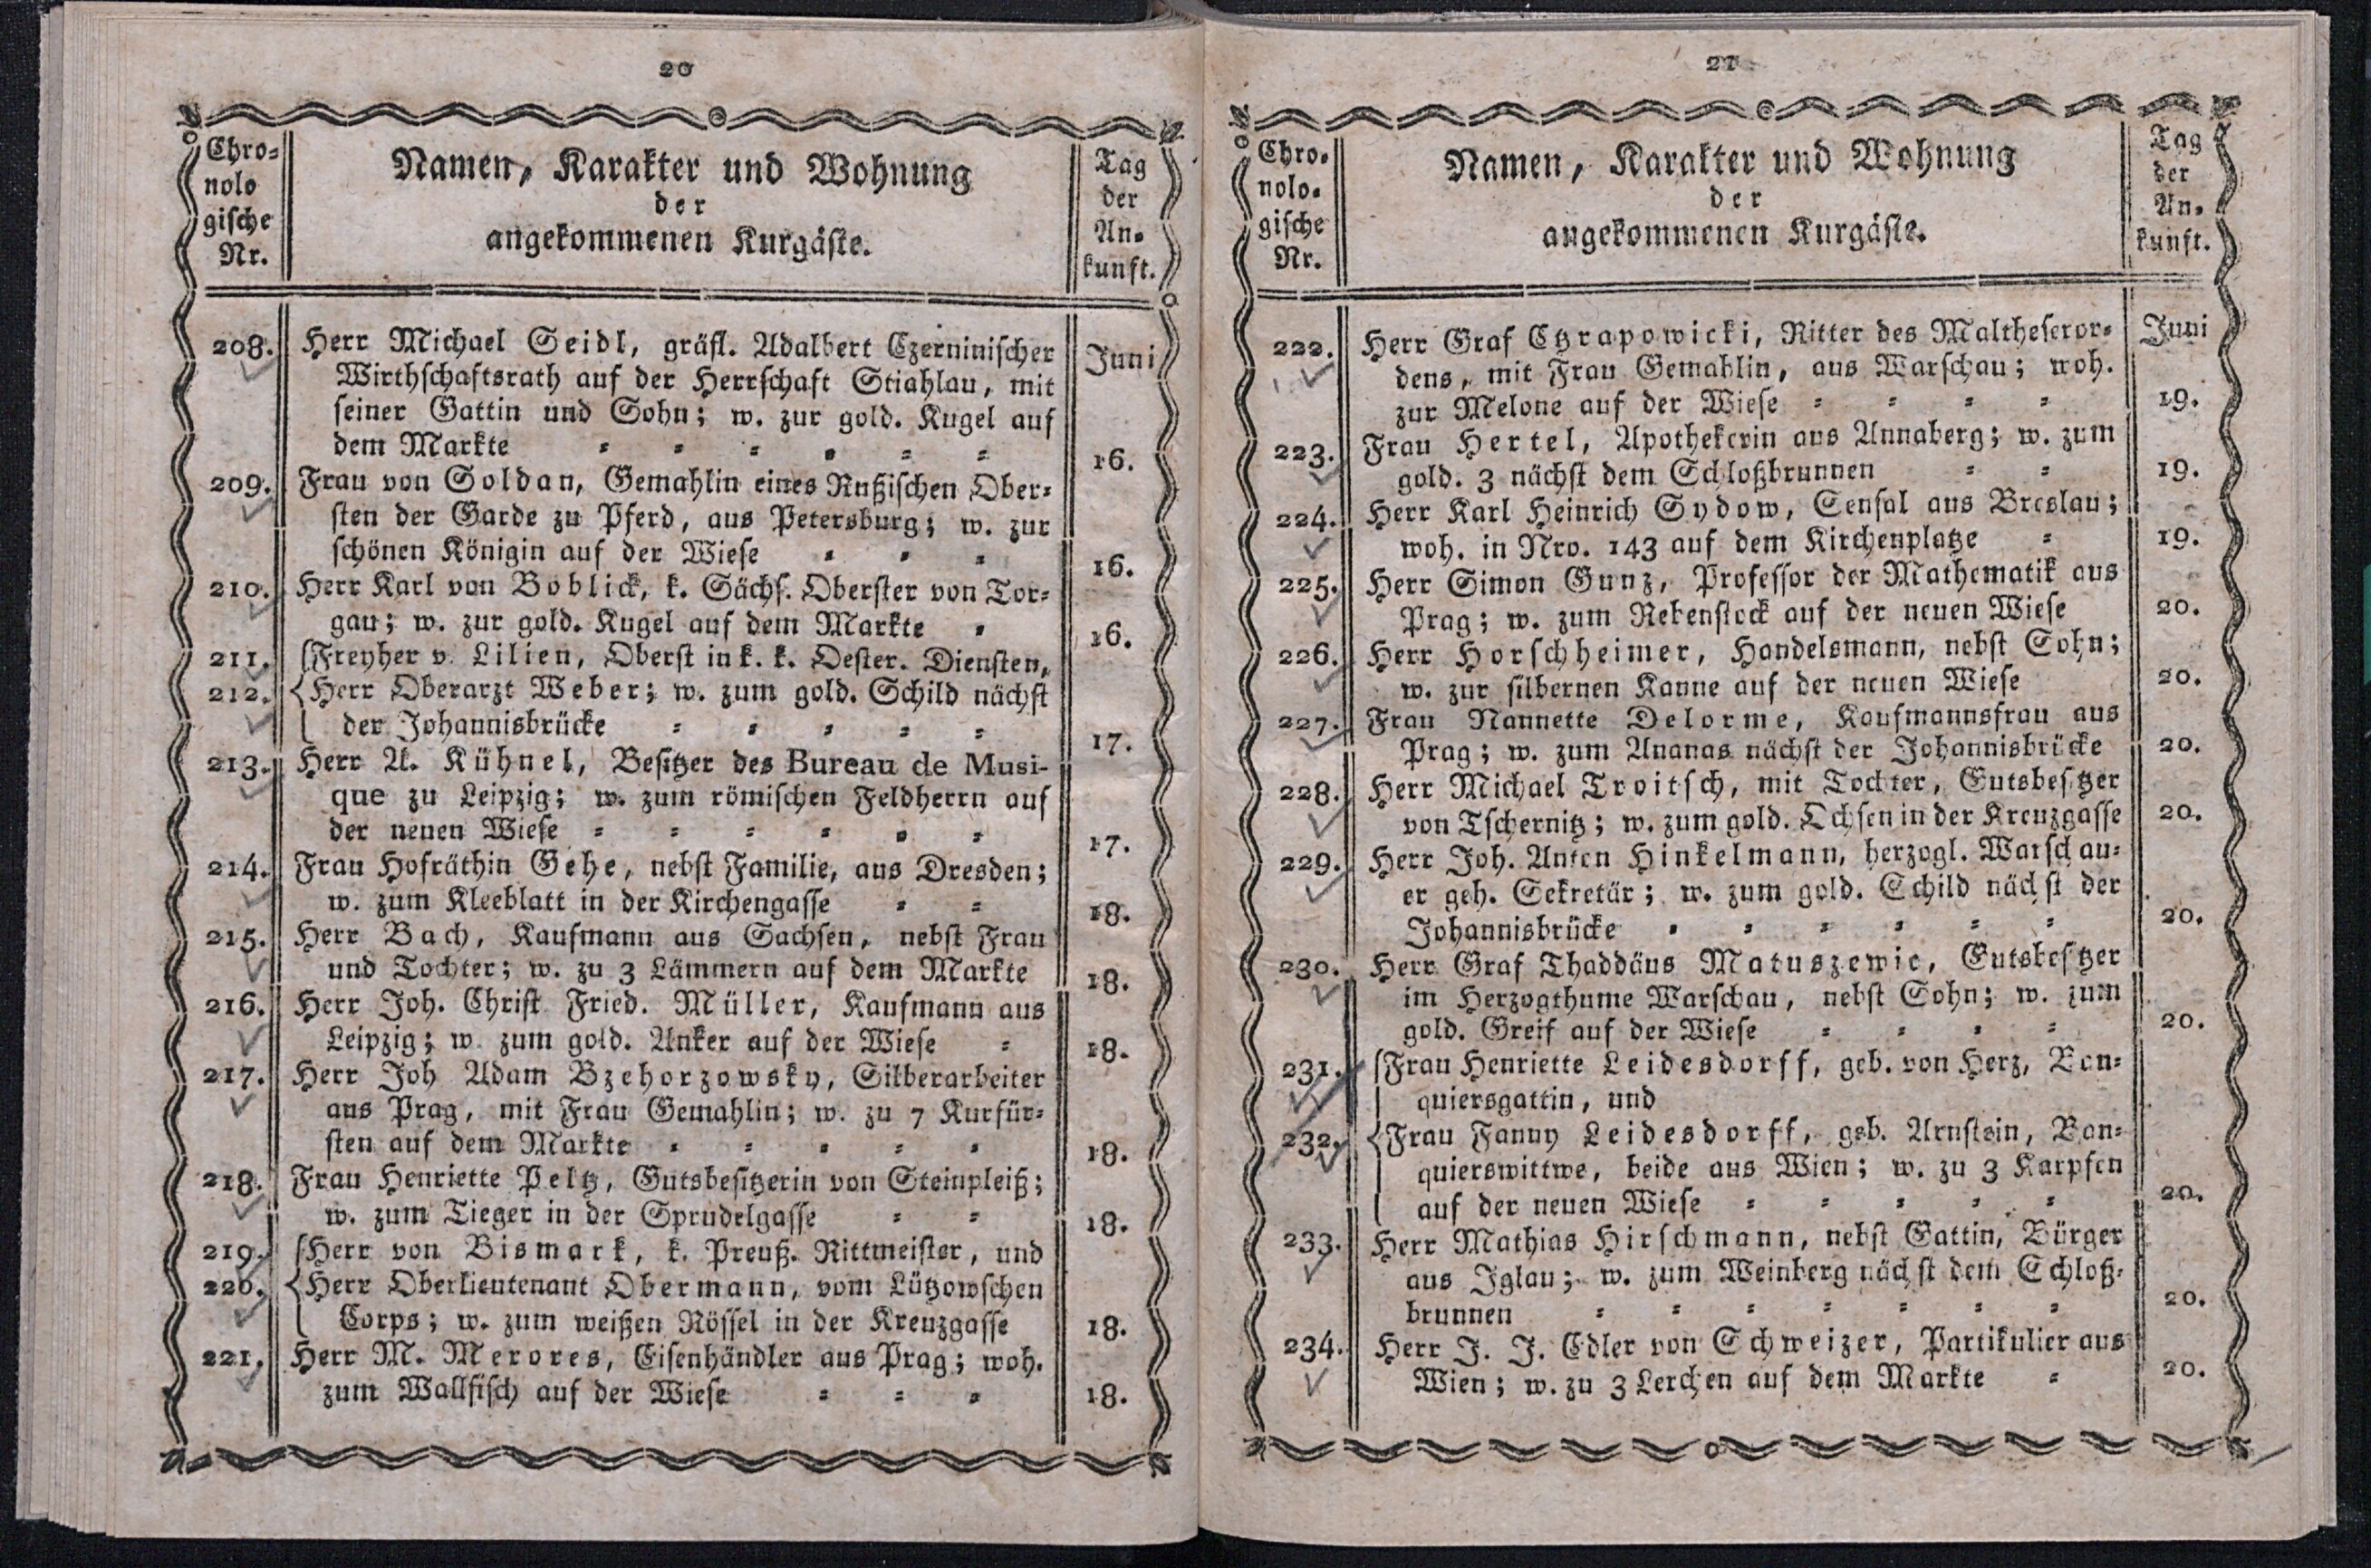 20
Chro-
nolo
gische
Nr.
Namen, Karakter und Wohnung
der
angekommenen Kurgäste.
Tag
der
An-
kunft.
208. Herr Michael Seidl, gräfl. Adalbert Czerninischer Juni
Wirthschaftsrath auf der Herrschaft Stiahlau, mit
seiner Gattin und Sohn; w. zur gold. Kugel auf
dem Markte = = = = = = 16.
209. Frau von Soldan, Gemahlin eines Rußischen Ober-
sten der Garde zu Pferd, aus Petersburg; w. zur
schönen Königin auf der Wiese = = = 16.
210. Herr Karl von Boblick, k. Sächs. Oberster von Tor-
gau; w. zur gold. Kugel auf dem Markte = 16.
211. Freyher v. Lilien, Oberst in k. k. Oester. Diensten,
212. Herr Oberarzt Weber; w. zum gold. Schild nächst
der Johannisbrücke = = = = = 17.
213. Herr A. Kühnel, Besitzer des Bureau de Musi-
que zu Leipzig; w. zum römischen Feldherrn auf
der neuen Wiese = = = = = = 17.
214. Frau Hofräthin Gehe, nebst Familie, aus Dresden;
w. zum Kleeblatt in der Kirchengasse = = 18.
215. Herr Bach, Kaufmann aus Sachsen, nebst Frau
und Tochter; w. zu 3 Lämmern auf dem Markte 18.
216. Herr Joh. Christ. Fried. Müller, Kaufmann aus
Leipzig; w. zum gold. Anker auf der Wiese = 18.
217. Herr Joh Adam Bzehorzowsky, Silberarbeiter
aus Prag, mit Frau Gemahlin; w. zu 7 Kurfür-
sten auf dem Markte = = = = = 18.
218. Frau Henriette Peltz, Gutsbesitzerin von Steinpleiß;
w. zum Tieger in der Sprudelgasse = = 18.
219. Herr von Bismark, k. Preuß. Rittmeister, und
220. Herr Oberlieutenant Obermann, vom Lützowschen
Corps; w. zum weißen Rössel in der Kreuzgasse 18.
221. Herr M. Merores, Eisenhändler aus Prag; woh.
zum Wallfisch auf der Wiese = = = 18.
21
Chro-
nolo-
gische
Nr.
Namen, Karakter und Wohnung
der
angekommenen Kurgäste.
Tag
der
An-
kunft.
222. Herr Graf Cyrapowicki, Ritter des Maltheseror- Juni
dens, mit Frau Gemahlin, aus Warschau; woh.
zur Melone auf der Wiese = = = = 19.
223. Frau Hertel, Apothekerin aus Annaberg; w. zum
gold. 3 nächst dem Schloßbrunnen = = 19.
224. Herr Karl Heinrich Sydow, Sensal aus Breslau;
woh. in Nro. 143 auf dem Kirchenplatze = 19.
225. Herr Simon Gunz, Professor der Mathematik aus
Prag; w. zum Rebenstock auf der neuen Wiese 20.
226. Herr Horschheimer, Handelsmann, nebst Sohn;
w. zur silbernen Kanne auf der neuen Wiese 20.
227. Frau Nannette Delorme, Kaufmannsfrau aus
Prag; w. zum Ananas nächst der Johannisbrücke 20.
228. Herr Michael Troitsch, mit Tochter, Gutsbesitzer
von Tschernitz; w. zum gold. Ochsen in der Kreuzgasse 20.
229. Herr Joh. Anton Hinkelmann, herzogl. Warschau-
er geh. Sekretär; w. zum gold. Schild nächst der
Johannisbrücke = = = = = = 20.
230. Herr Graf Thaddäus Matuszewic, Gutsbesitzer
im Herzogthume Warschau, nebst Sohn; w. zum
gold. Greif auf der Wiese = = = = 20.
231. Frau Henriette Leidesdorff, geb. von Herz, Ban-
quiersgattin, und
232. Frau Fanny Leidesdorff, geb. Arnstein, Ban-
quierswittwe, beide aus Wien; w. zu 3 Karpfen
auf der neuen Wiese = = = = = 20.
233. Herr Mathias Hirschmann, nebst Gattin, Bürger
aus Iglau; w. zum Weinberg nächst dem Schloß-
brunnen = = = = = = = 20.
234. Herr J. J. Edler von Schweizer, Partikulier aus
Wien; w. zu 3 Lerchen auf dem Markte = 20.